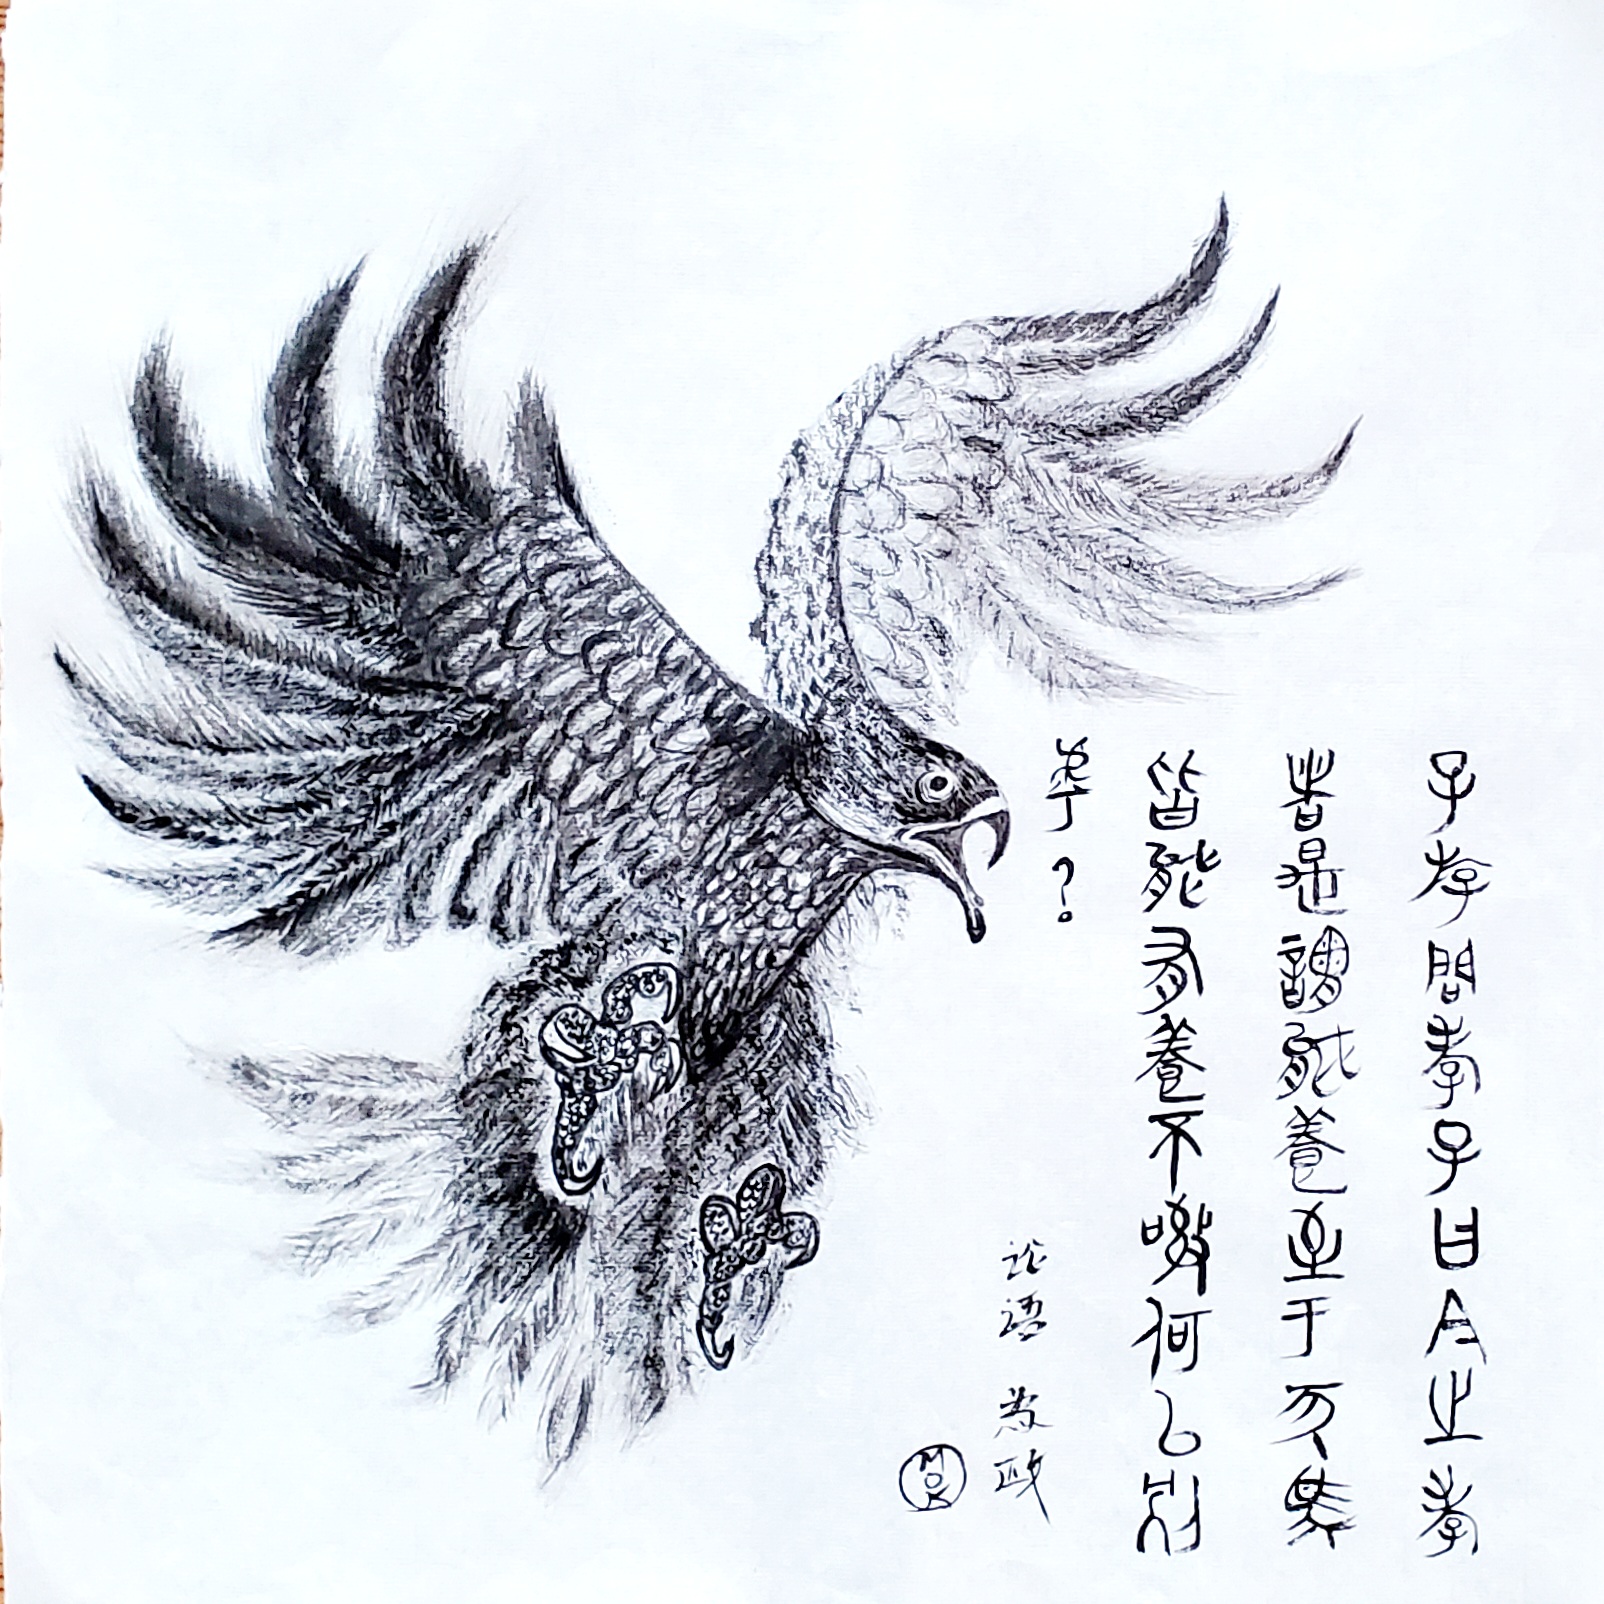 子存問孝子曰今之孝
者是謂能養至于犬馬
皆能有養不敬何以別
乎?
论语 為政
MOK